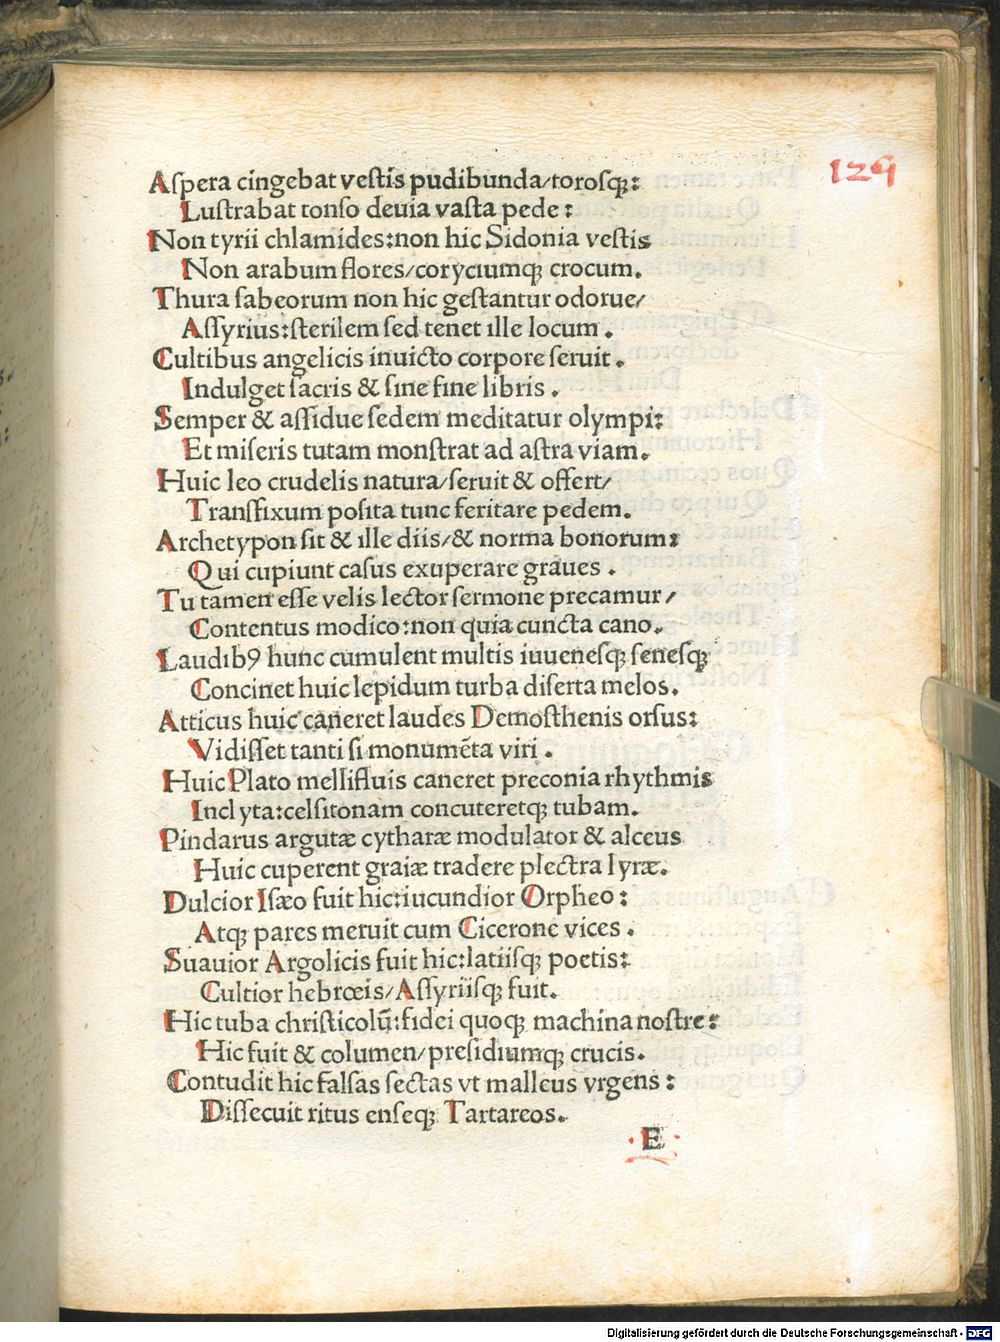 129
Aſpera cingebat veſtis pudibunda/toroſqꝫ:
Luſtrabat tonſo deuia vaſta pede:
Non tyrii chlamides:non hic Sidonia veſtis
Non arabum flores/coryciumqꝫ crocum.
Thura ſabeorum non hic geſtantur odorue/
Aſſyrius:ſterilem ſed tenet ille locum.
Cultibus angelicis inuicto corpore ſeruit.
Indulget ſacris & ſine fine libris.
Semper & aſſidue ſedem meditatur olympi:
Et miſeris tutam monſtrat ad aſtra viam.
Huic leo crudelis natura/ſeruit & offert/
Tranſfixum poſita tunc feritare pedem.
Archetypon ſit & ille diis/& norma bonorum:
Qui cupiunt caſus exuperare graues.
Tu tamen eſſe velis lector ſermone precamur/
Contentus modico:non quia cuncta cano.
Laudibꝯ hunc cumulent multis iuueneſqꝫ ſeneſqꝫ
Concinet huic lepidum turba diſerta melos.
Atticus huic caneret laudes Demoſthenis orſus:
Vidiſſet tanti ſi monumēta viri.
Huic Plato mellifluis caneret preconia rhythmis
Inclyta:celſitonam concuteretqꝫ tubam.
Pindarus argutæ cytharæ modulator & alceus
Huic cuperent graiæ tradere plectra lyræ.
Dulcior Iſæo fuit hic:iucundior Orpheo:
Atqꝫ pares meruit cum Cicerone vices.
Suauior Argolicis fuit hic:latiiſqꝫ poetis:
Cultior hebrœis/Aſſyriiſqꝫ fuit.
Hic tuba chriſticolū:fidei quoqꝫ machina noſtre:
Hic fuit & columen/preſidiumqꝫ crucis.
Contudit hic falſas ſectas vt malleus vrgens:
Diſſecuit ritus enſeqꝫ Tartareos.
E
Digitalisierung gefördert durch die Deutsche Forschungsgemeinschaft - DFG